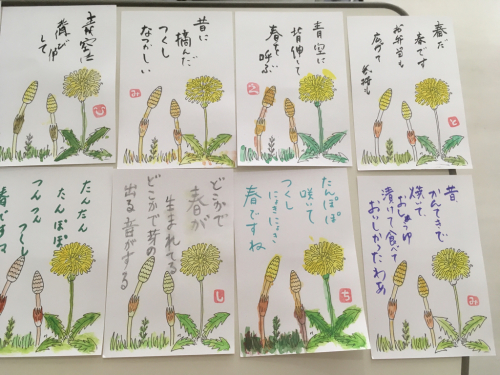 青空に
背伸して
昔に
摘んだ
つくし
なつかしい
青空に
背伸して
春を呼ぶ
春だ
春です
お弁当も
広げて
たんたん
たんぽぽ
つんつん
つくし
春ですね
どこかで
春が
生まれてる
どこかで芽の
出る音がする
たんぽぽ
咲いて
つくし
にょきにょき
春ですね
昔
かんてきで
焼いて
おしょうゆ
漬けて食べて
おいしかったわぁ
ひ
み
と
し
ち
み